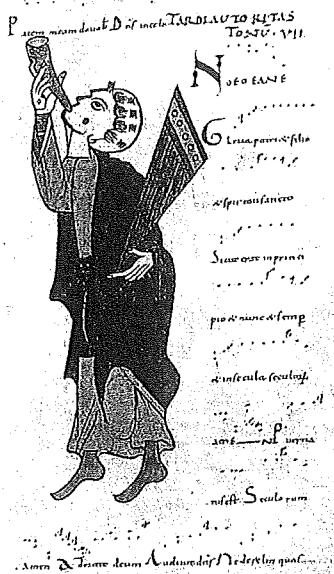 Pacem meam do uob Dns in celo TARDI AUTORITAS
TONU VII
NOEOEANE
Gloria patri & filio
& spiritui sancto
Sicut erat in princi
pio & nunc & semp
& in secula seculoru
am NP uerna
nus est Seculorum
amen Adorate deum Audiuit dns Ne derelin quas